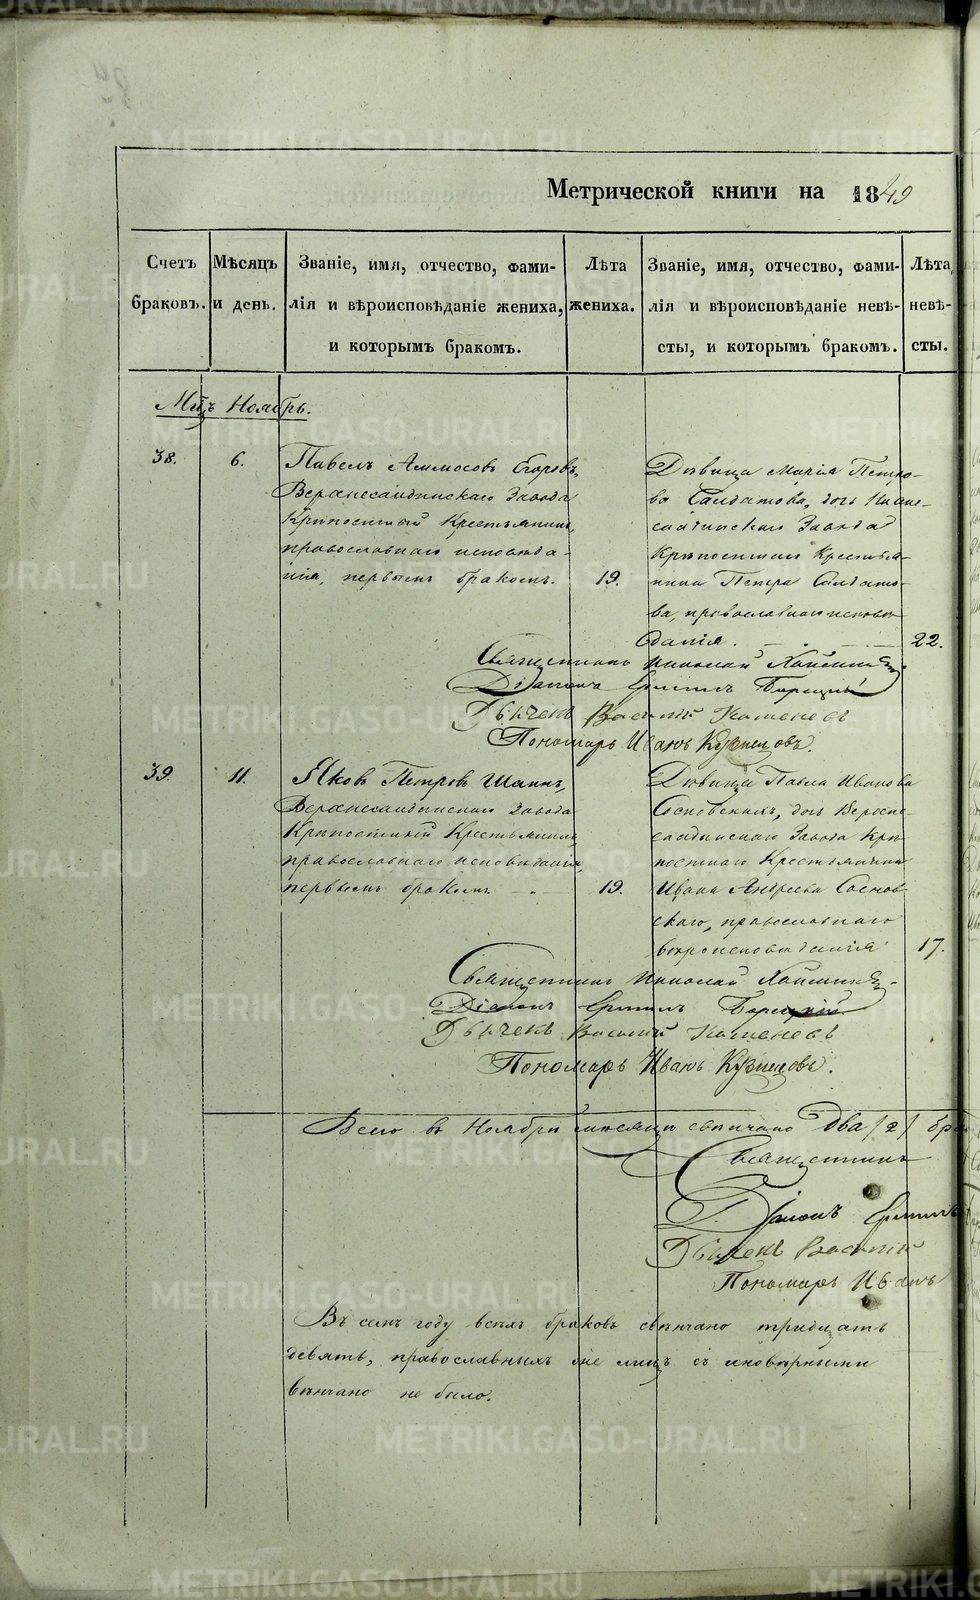 Метрической книги на 1849
Счетъ браковъ.
Мѣсяцъ и день.
Званіе, имя, отчество, фами-
лія и вѣроисповѣданіе жениха,
и которымъ бракомъ.
Лѣта жениха.
Званіе, имя, отчество, фами-
лія и вѣроисповѣданіе невѣ-
сты, и которымъ бракомъ.
Лѣта невѣ-
сты.
Мцъ Ноябрь.
38.
6.
Павелъ Аммосовъ Егоровъ,
Верхнесалдинскаго Завода
Крѣпостной Крестьянинъ,
православнаго исповѣда-
нія, первымъ бракомъ.
19.
Дѣвица Марія Петро-
ва Салдатова, дочь Нижне-
салдинскаго Завода
Крѣпостнаго Крестья-
нина Петра Салдато-
ва, православнаго исповѣ-
данія.
22.
Священникъ Николай
Діаконъ Ермилъ
Дьячекъ Василій Каменевъ
Пономарь Иванъ Кузнецовъ.
39.
11.
Яковъ Петровъ Шаинъ,
Верхнесалдинскаго Завода
Крѣпостной Крестьянинъ,
православнаго исповѣданія,
первымъ бракомъ
19.
Дѣвица Павла Иванова
Сосновскихъ, дочь Верхне-
салдинскаго Завода Крѣ-
постнаго Крестьянина
Ивана Андреева Соснов-
скаго, православнаго
вѣроисповѣданія
17.
Священникъ Николай
Діаконъ Ермилъ
Дьячекъ Василій Каменевъ
Пономарь Иванъ Кузнецовъ.
Всего въ Ноябрѣ мѣсяцѣ свѣнчано Два /2/ бра
Священникъ
Діаконъ Ермилъ
Дьячекъ Василій
Пономарь Иванъ
Въ семъ году всѣхъ браковъ свѣнчано тридцать
девять, православныхъ же лицъ съ иновѣрными
вѣнчано не было.
METRIKI.GASO-URAL.RU